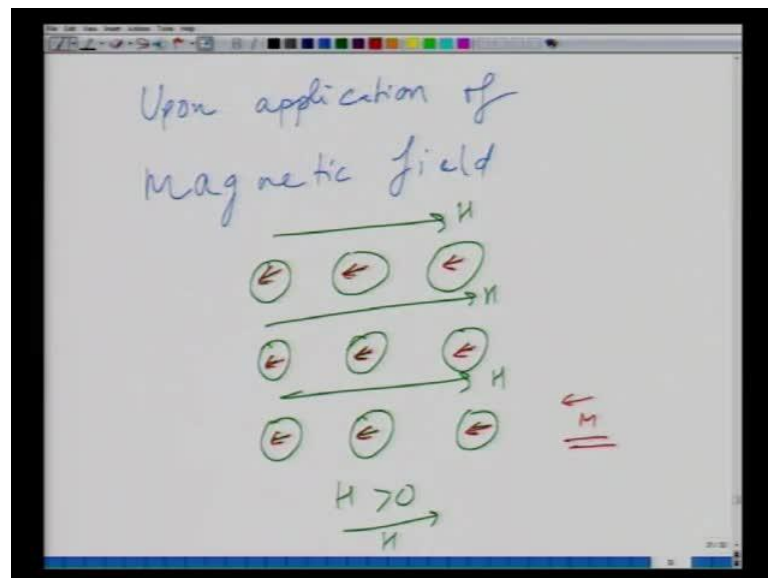 Upon application of
Magnetic field
H
H
H
M
H >0
H